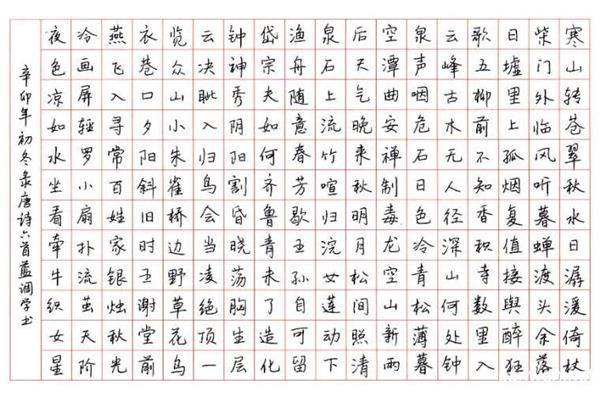 寒山转苍翠秋水日潺湲倚杖
柴门外临风听暮蝉渡头余落
日墟里上孤烟复值接舆醉狂
歌五柳前不知香积寺数里入
云峰古木无人径深山何处钟
泉声咽危石日色冷青松薄暮
空潭曲安禅制毒龙空山新雨
后天气晚来秋明月松间照清
泉石上流竹喧归浣女莲动下
渔舟随意春芳歇王孙自可留
岱宗夫如何齐鲁青未了造化
钟神秀阴阳割昏晓荡胸生层
云决眦入归鸟会当凌绝顶一
览众山小朱雀桥边野草花鸟
衣巷口夕阳斜旧时王谢堂前
燕飞入寻常百姓家银烛秋光
冷画屏轻罗小扇扑流萤天阶
夜色凉如水坐看牵牛织女星
辛卯年初冬录唐诗六首蓝调学书